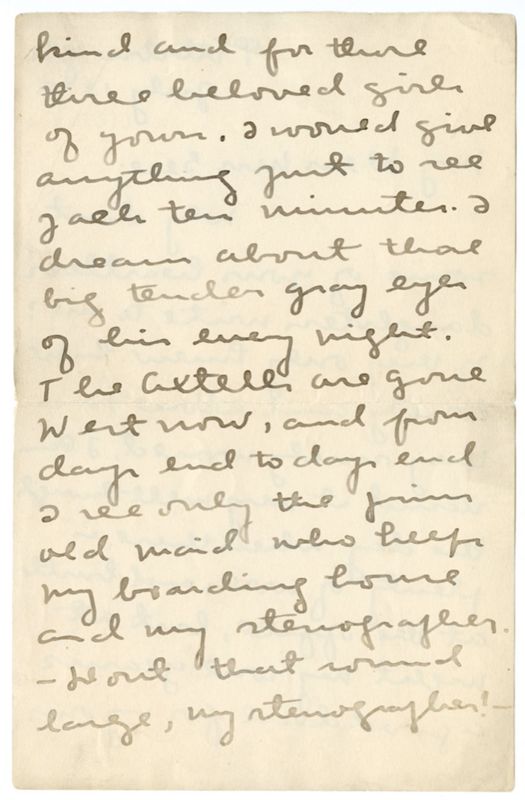 kind and for those
three beloved girls
of yours. I would give
anything just to see
Jack ten minutes. I
dream about those
big tender gray eyes
of his every night.
The Axtells are gone
West now, and from
days end to days end
I see only the prim
old maid who keeps
my boarding house
and my stenographer.
- Dont that sound
large, my stenographer! -